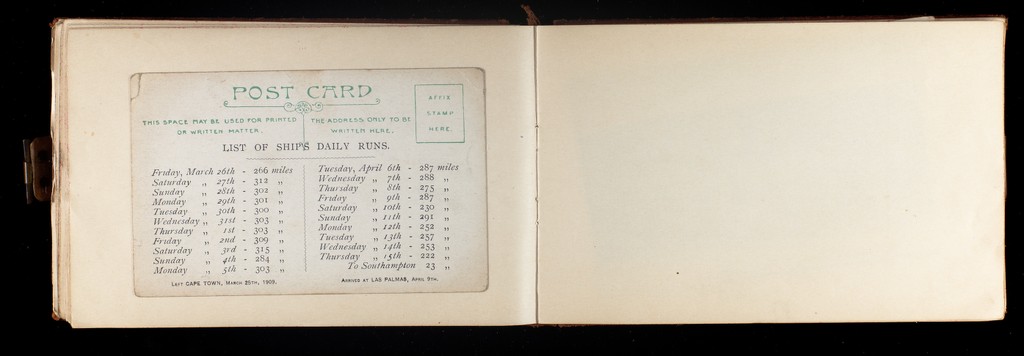 POST CARD
THIS SPACE MAY BE USED FOR PRINTED
OR WRITTEN MATTER.
THE ADDRESS ONLY TO BE
WRITTEN HERE.
AFFIX
STAMP
HERE.
LIST OF SHIP'S DAILY RUNS.
Friday, March 26th - 266 miles
Saturday „ 27th - 312 „
Sunday „ 28th - 302 „
Monday „ 29th - 301 „
Tuesday „ 30th - 300 „
Wednesday „ 31st - 303 „
Thursday „ 1st - 303 „
Friday „ 2nd - 309 „
Saturday „ 3rd - 315 „
Sunday „ 4th - 284 „
Monday „ 5th - 303 „
LEFT CAPE TOWN, MARCH 25TH, 1909.
Tuesday, April 6th - 287 miles
Wednesday „ 7th - 288 „
Thursday „ 8th - 275 „
Friday „ 9th - 287 „
Saturday „ 10th - 230 „
Sunday „ 11th - 291 „
Monday „ 12th - 252 „
Tuesday „ 13th - 257 „
Wednesday „ 14th - 253 „
Thursday „ 15th - 222 „
To Southampton 23 „
ARRIVED AT LAS PALMAS, APRIL 9TH.